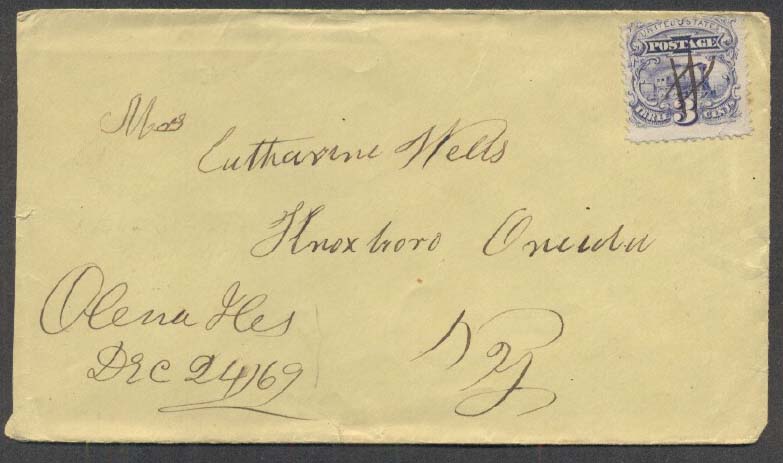 UNITED STATES
POSTAGE
THREE 3 CENTS
Mrs
Catharine Wells
Knoxboro Oneida
NY
Olena Ills
DEC 24/69